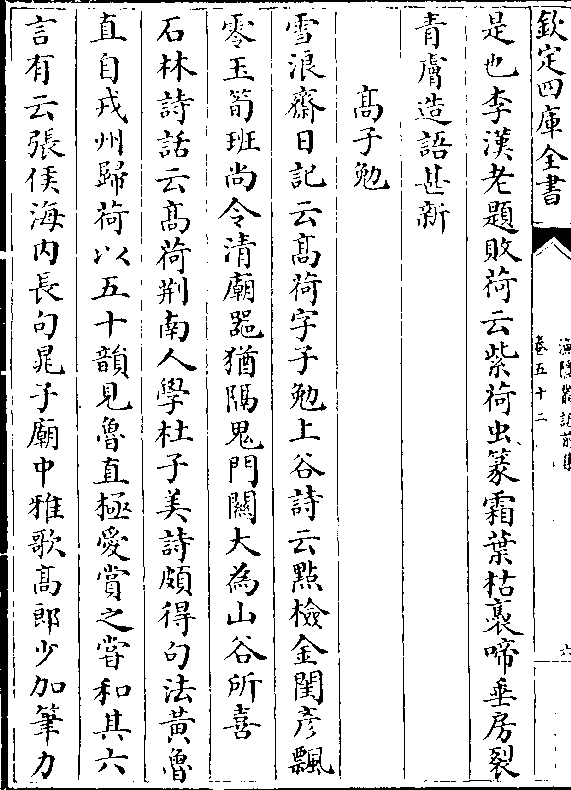 欽定四庫全書
漁隱叢話前集
卷五十二
六
是也李漢老題敗荷云紫荷虫篆霜葉枯裛啼垂房裂
青膚造語甚新
髙子勉
雪浪齋日記云髙荷字子勉上谷詩云點檢金閨彦飄
零玉筍班尚令清廟器猶隔鬼門闗大為山谷所喜
石林詩話云髙荷荆南人學杜子美詩頗得句法黄魯
直自戎州歸荷以五十韻見魯直極愛賞之甞和其六
言有云張侯海内長句晁子廟中雅歌髙郎少加筆力